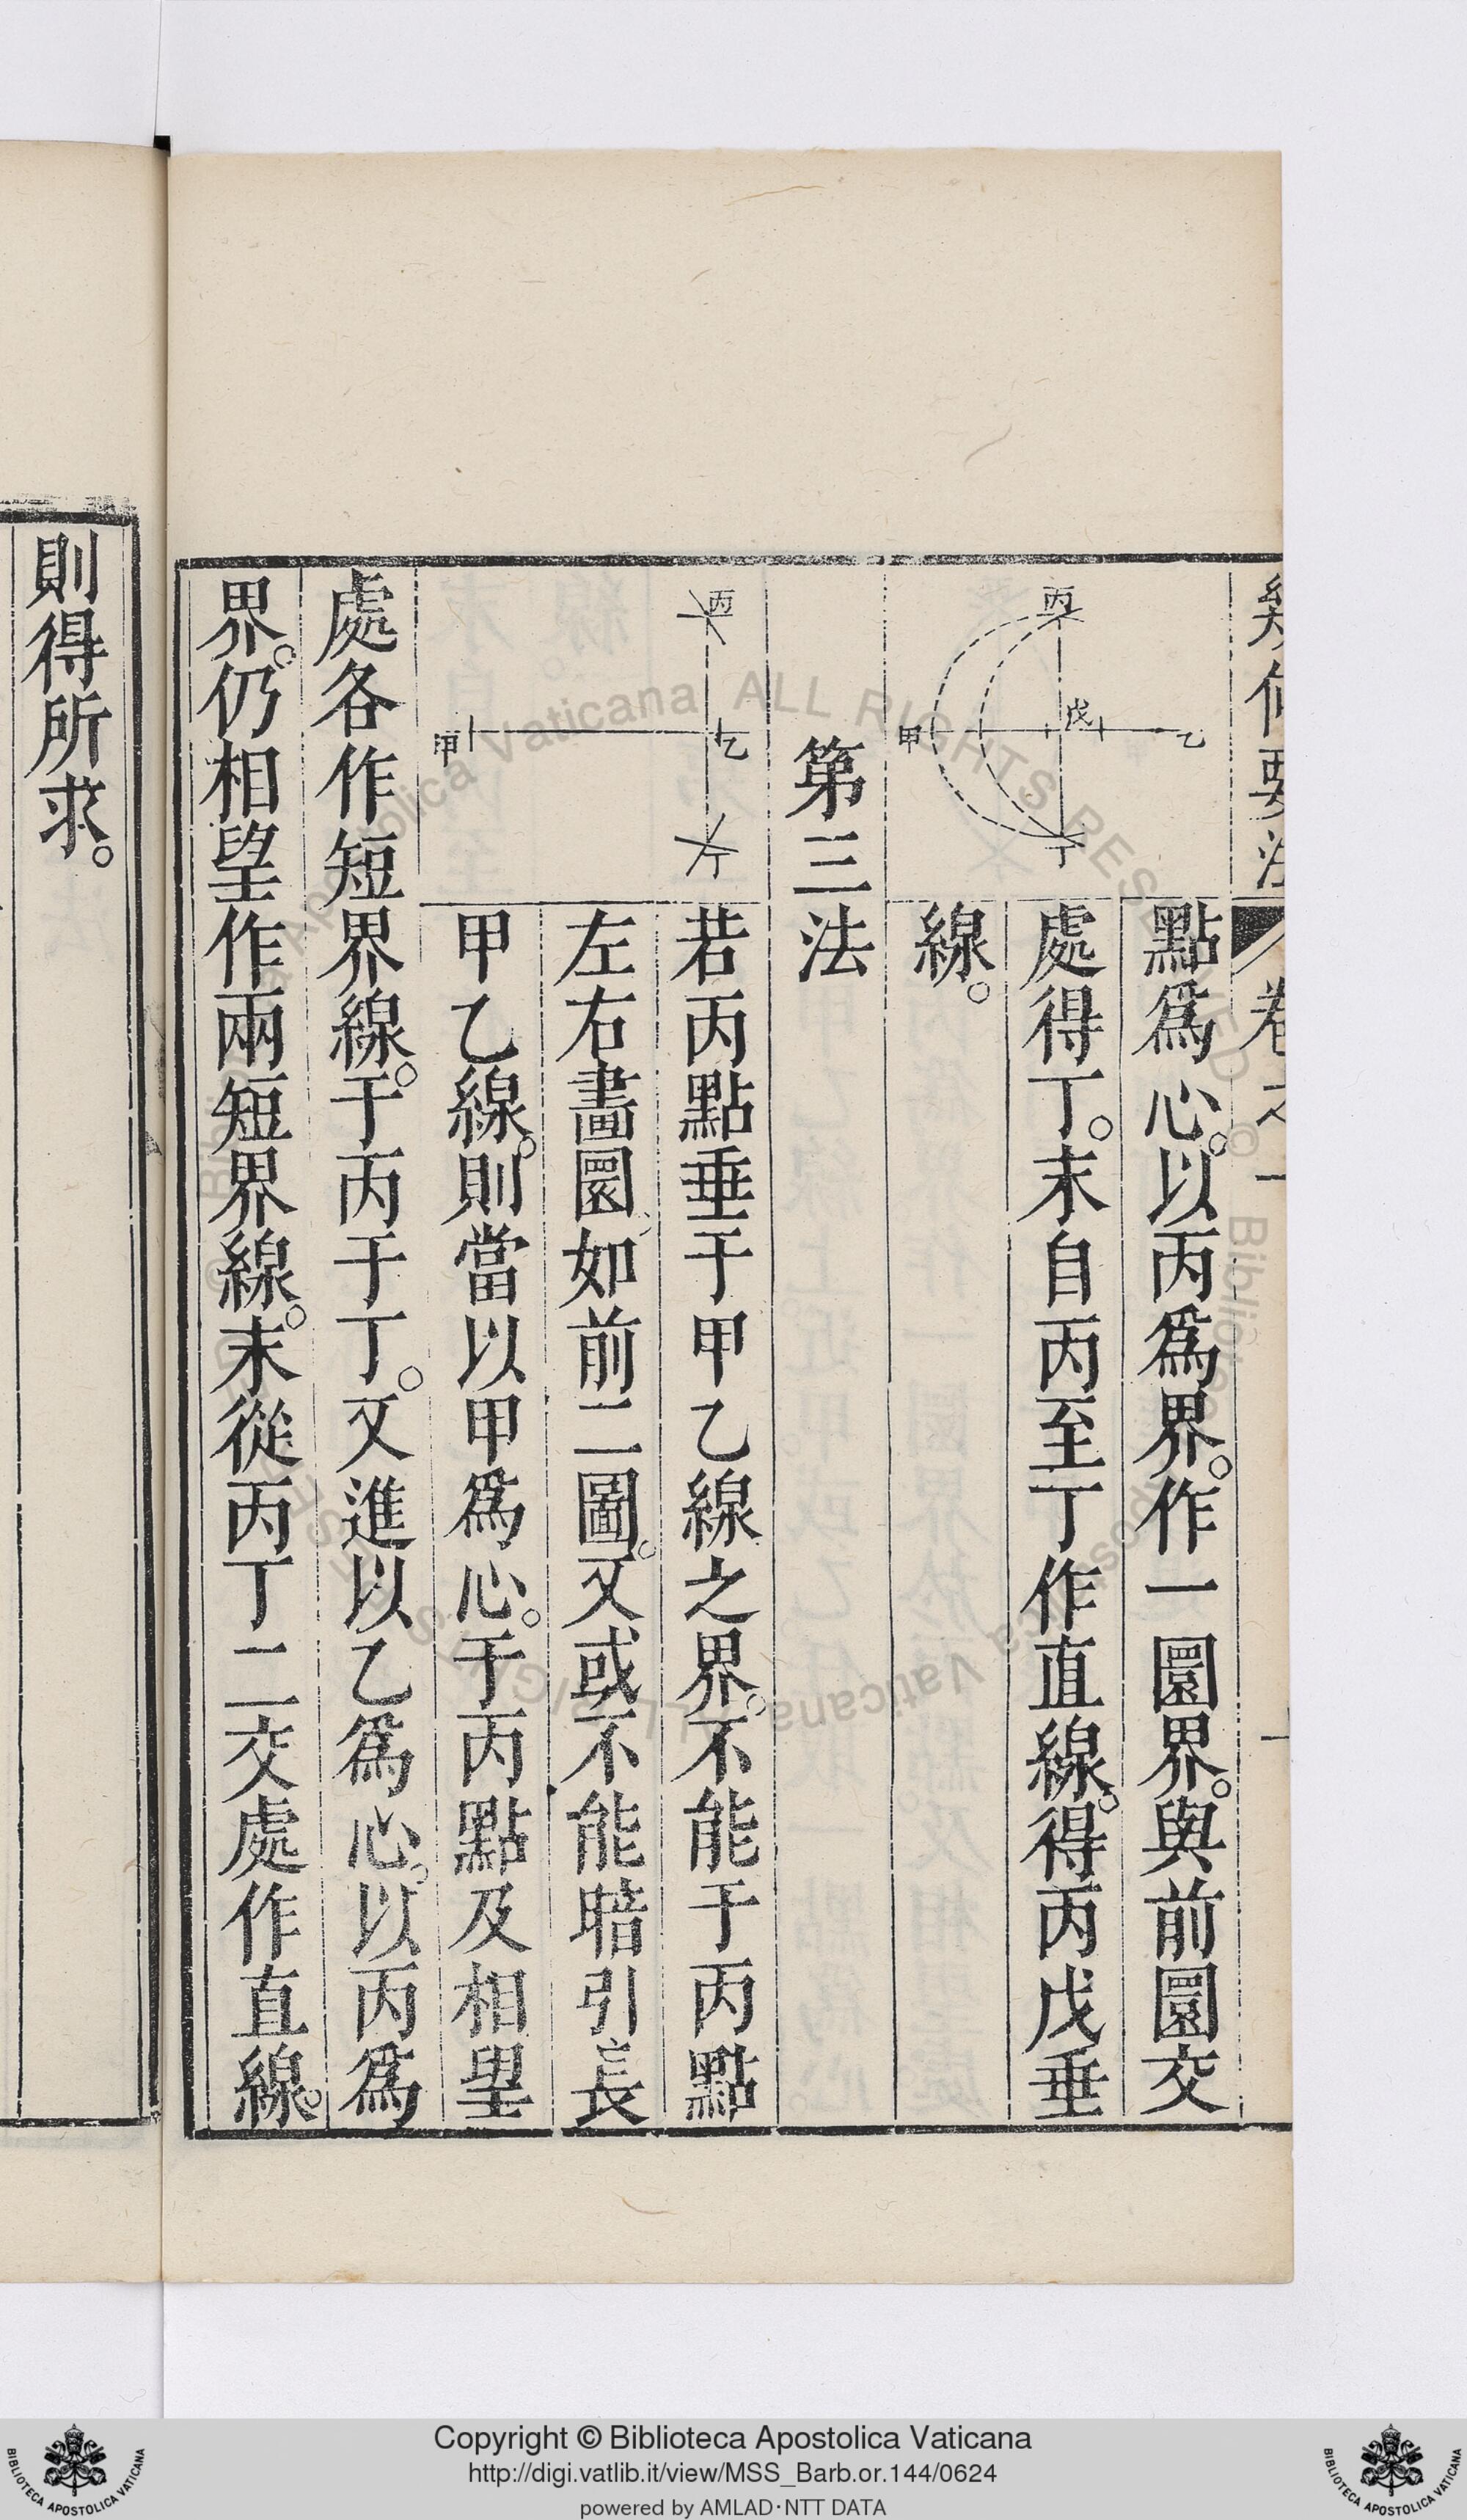 幾何要法 卷之一
點爲心。以丙爲界。作一圜界。與前圜交
處得丁。末自丙至丁作直線。得丙戊垂
線。
丙
戊
甲
乙
丁
第三法
若丙點垂于甲乙線之界。不能于丙點
左右畫圜、如前二圖。又或不能暗引長
甲乙線。則當以甲爲心。于丙點及相望
丙
甲
乙
丁
處各作短界線。于丙于丁。又進以乙爲心。以丙爲
界。仍相望作兩短界線。末從丙丁二交處作直線。
則得所求。
Copyright © Biblioteca Apostolica Vaticana
http://digi.vatlib.it/view/MSS_Barb.or.144/0624
powered by AMLAD·NTT DATA
BIBLIOTECA APOSTOLICA VATICANA
BIBLIOTECA APOSTOLICA VATICANA